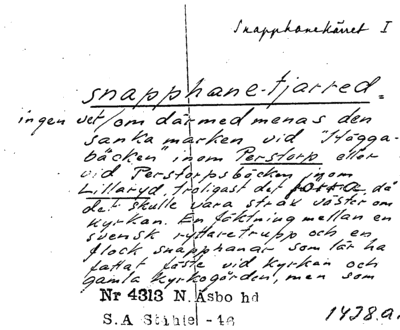 Snapphanekärret I
snapphane-tjarred =
ingen vet/om därmed menas den
sanka marken vid "Högga-
bäcken" inom Perstorp eller
vid Perstorpsbäcken inom
Lillaryd, troligast det , då
det skulle vara strax väster om
kyrkan. En fäktning mellan en
svensk ryttaretrupp och en
flock snapphanar som lär ha
fattat fäste vid kyrkan och
gamla kyrkogården, men som
Nr 4313 N. Åsbo hd
S.A -46
1438.a.